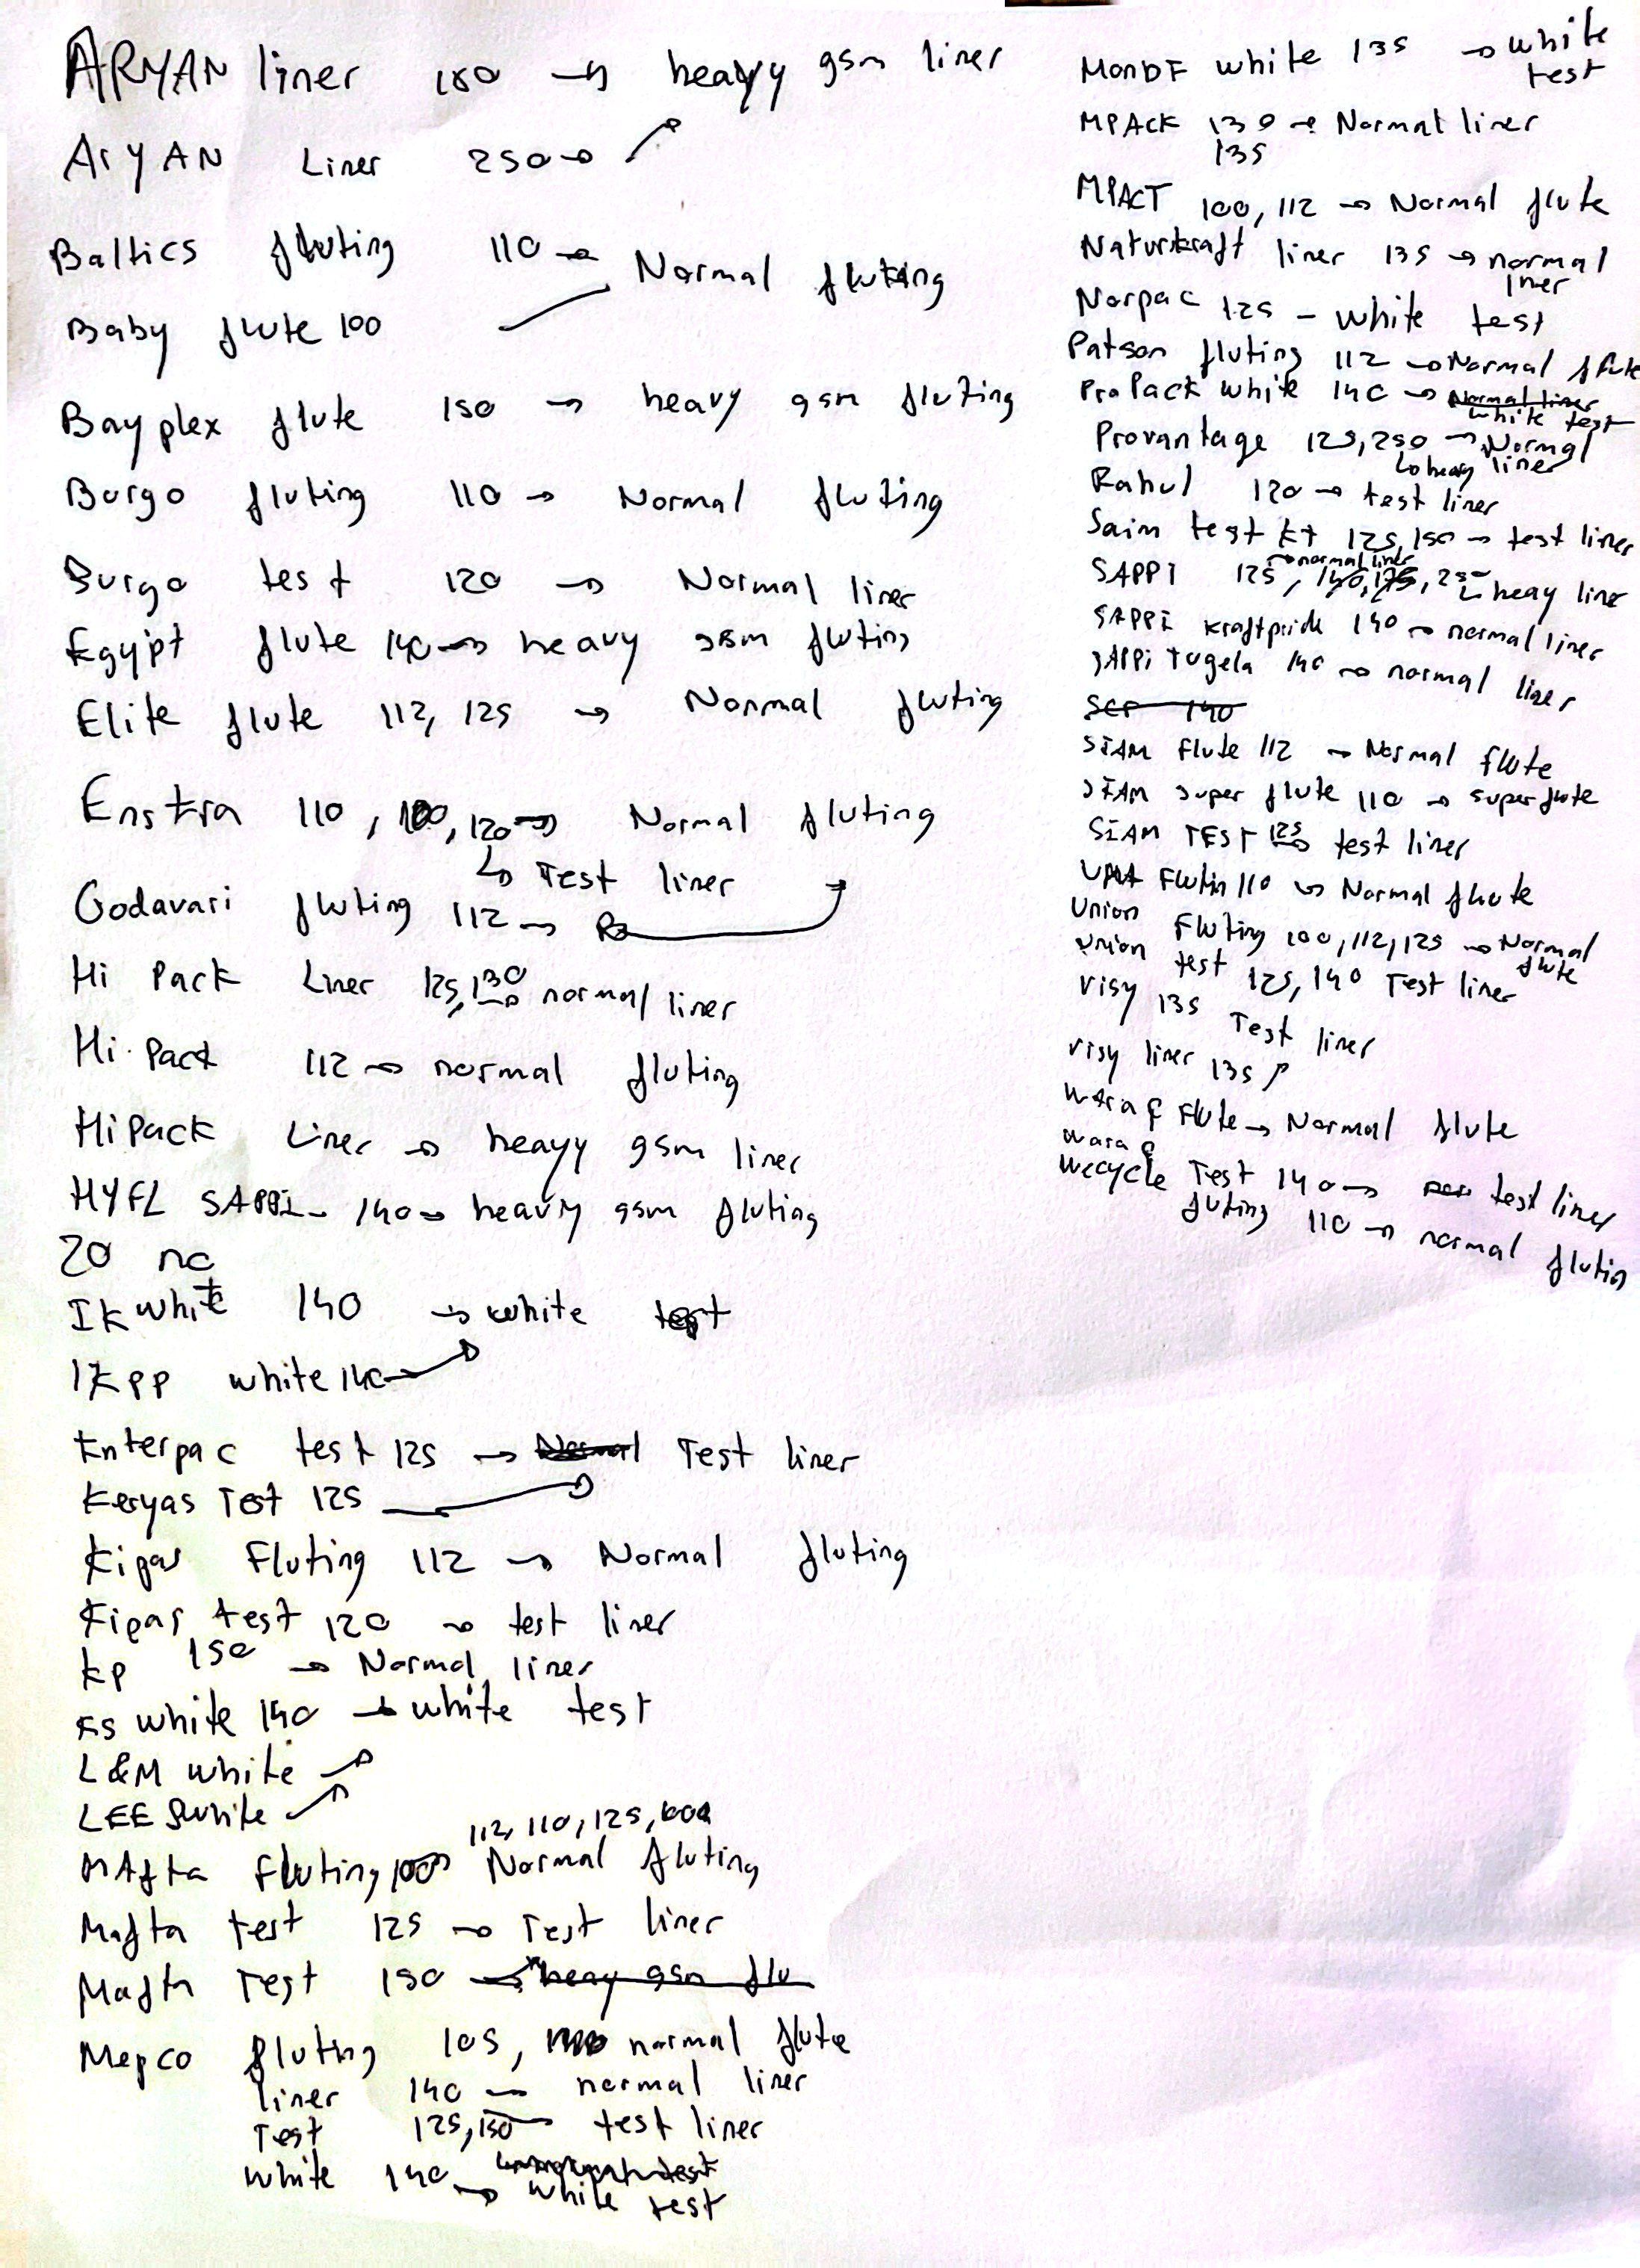 ARYAN liner 180 → heavy gsm liner
ArYAN Liner 250 →
Baltics fluting 110 → Normal fluting
Baby flute 100
Bayplex flute 150 → heavy gsm fluting
Burgo fluting 110 → Normal fluting
Burgo test 120 → Normal liner
Egyipt flute 140 → heavy gsm fluting
Elite flute 112, 125 → Normal fluting
Enstra 110, 100, 120 → Normal fluting
↳ Test liner
Godavari fluting 112 →
Hi Pack Liner 125, 130 → normal liner
Hi Pack 112 → normal fluting
Hi Pack Liner → heavy gsm liner
HYFL SAPPI - 140 → heavy gsm fluting
20 no
IK white 140 → white test
IKPP white 140 →
Knterpac test 125 → Test liner
Keryas Test 125
Kipas Fluting 112 → Normal fluting
Kipas test 120 → test liner
KP 150 → Normal liner
KS white 140 → white test
L&M white
LEE & white
112, 110, 125,
MAfta Fluting 100 → Normal fluting
Mafta test 125 → Test liner
Mafta Test 150 → heavy gsm flu
Mepco fluting 105, normal flute
liner 140 — normal liner
Test 125, 150 — test liner
white 140 → white test
MonDF white 135 → white
test
MPACK 130 → Normal liner
135
MPACT 100, 112 → Normal flute
Naturkraft liner 135 → normal
liner
Norpac 125 - white test
Patson fluting 112 → Normal flute
ProPack white 140 → Normal liner
white test
Provantage 125, 250 → Normal
↳ heavy liner
Rahul 120 → test liner
Saim test kt 125, 150 → test liner
→ normal liner
SAPPI 125, 140, 175, 250 ↳ heavy liner
SAPPI Kraftpride 140 → normal liner
SAPPi Tugela 140 → normal liner
SCP 140
SIAM Flute 112 → Normal flute
SIAM super flute 110 → super flute
SIAM TEST 125 → test liner
Flutin 110 → Normal flute
Union Fluting 100, 112, 125 → Normal
flute
Union test 125, 140 Test liner
Visy 135 Test liner
Visy liner 135
Waraq Flute → Normal flute
Waraq
Wecycle Test 140 → test liner
fluting 110 → normal flutin